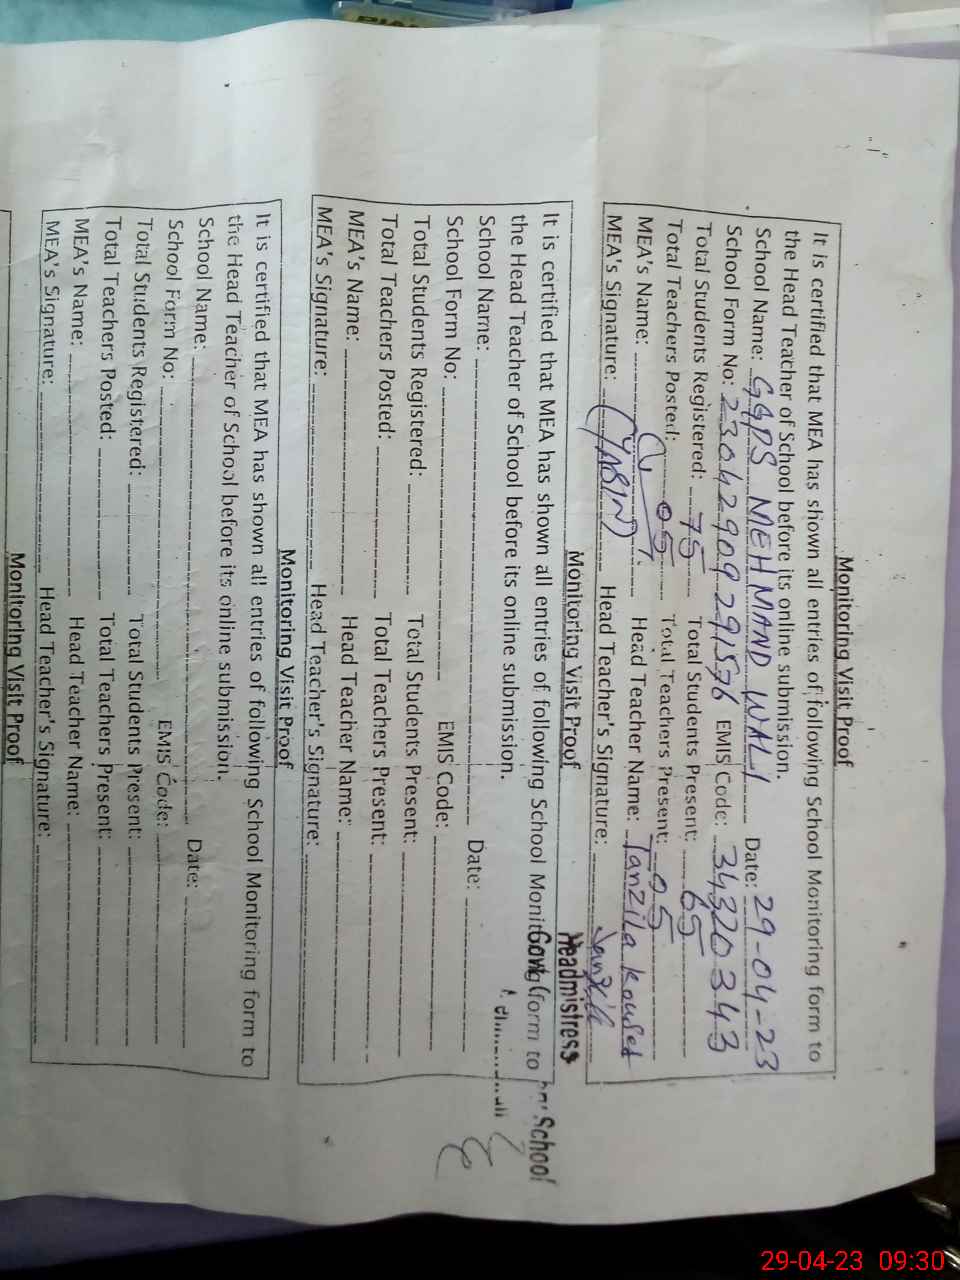 Monitoring Visit Proof
It is certified that MEA has shown all entries of following School Monitoring form to
the Head Teacher of School before its online submission.
School Name: GGPS MEHMAND WALI Date: 29-04-23
School Form No: 23042909291576 EMIS Code: 34320343
Total Students Registered: 75 Total Students Present: 65
Total Teachers Posted: 05 Total Teachers Present: 05
MEA's Name: Head Teacher Name: Tanzila Kouser
MEA's Signature: (YASIN) Head Teacher's Signature:
Headmistress
Monitoring Visit Proof
It is certified that MEA has shown all entries of following School Monitoring form to
the Head Teacher of School before its online submission.
School
School Name: Date:
School Form No: EMIS Code:
Total Students Registered: Total Students Present:
Total Teachers Posted: Total Teachers Present:
MEA's Name: Head Teacher Name:
MEA's Signature: Head Teacher's Signature:
Monitoring Visit Proof
It is certified that MEA has shown all entries of following School Monitoring form to
the Head Teacher of School before its online submission.
School Name: Date:
School Form No: EMIS Code:
Total Students Registered: Total Students Present:
Total Teachers Posted: Total Teachers Present:
MEA's Name: Head Teacher Name:
MEA's Signature: Head Teacher's Signature:
Monitoring Visit Proof
29-04-23 09:30